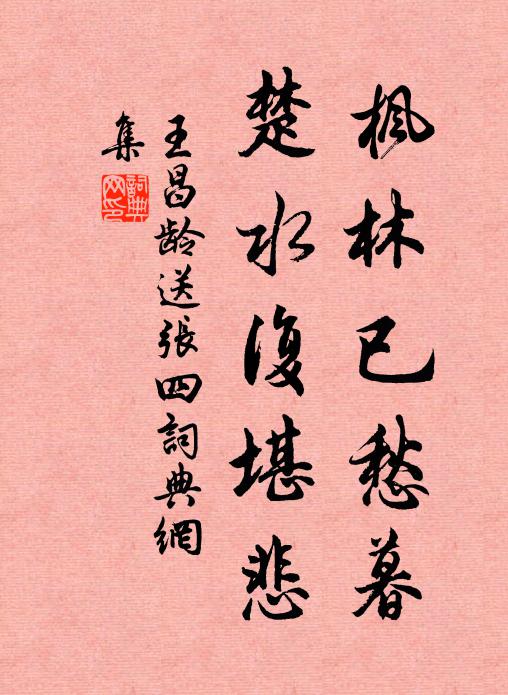 枫林已愁暮
楚水復堪悲
王昌龄送張四詞典網
集
詞典网印